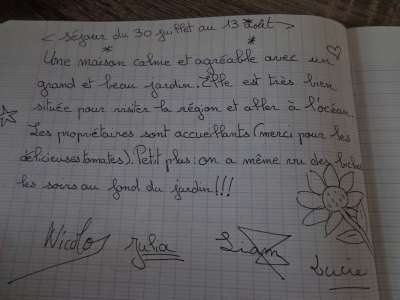 < séjour du 30 juillet au 13 août >
Une maison calme et agréable avec un
grand et beau jardin. Elle est très bien
située pour visiter la région et aller à l'océan.
Les propriétaires sont accueillants (merci pour les
délicieuses tomates). Petit plus : on a même vu des biches
les soirs au fond du jardin !!!
Nicolas Julia Liam Lucie